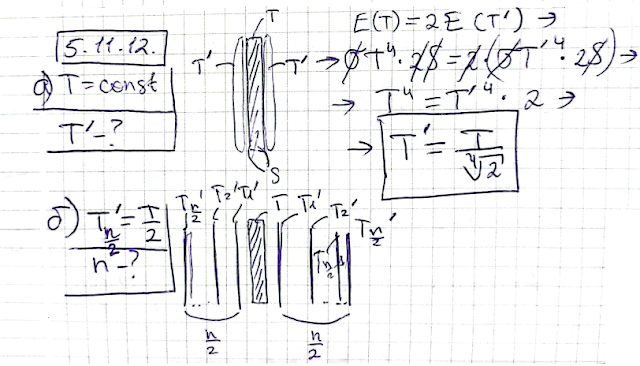 5.11.12.
а) T = const
T' - ?
T
T'
T'
S
E(T) = 2E(T') →
→ σT⁴ · 2S = 2(σT'⁴ · 2S) →
→ T⁴ = T'⁴ · 2 →
→ T' = T/∜2
б) T'n/2 = T/2
n - ?
Tn/2' T2' T1' T T1' T2' Tn/2'
Tn/2
n/2
n/2